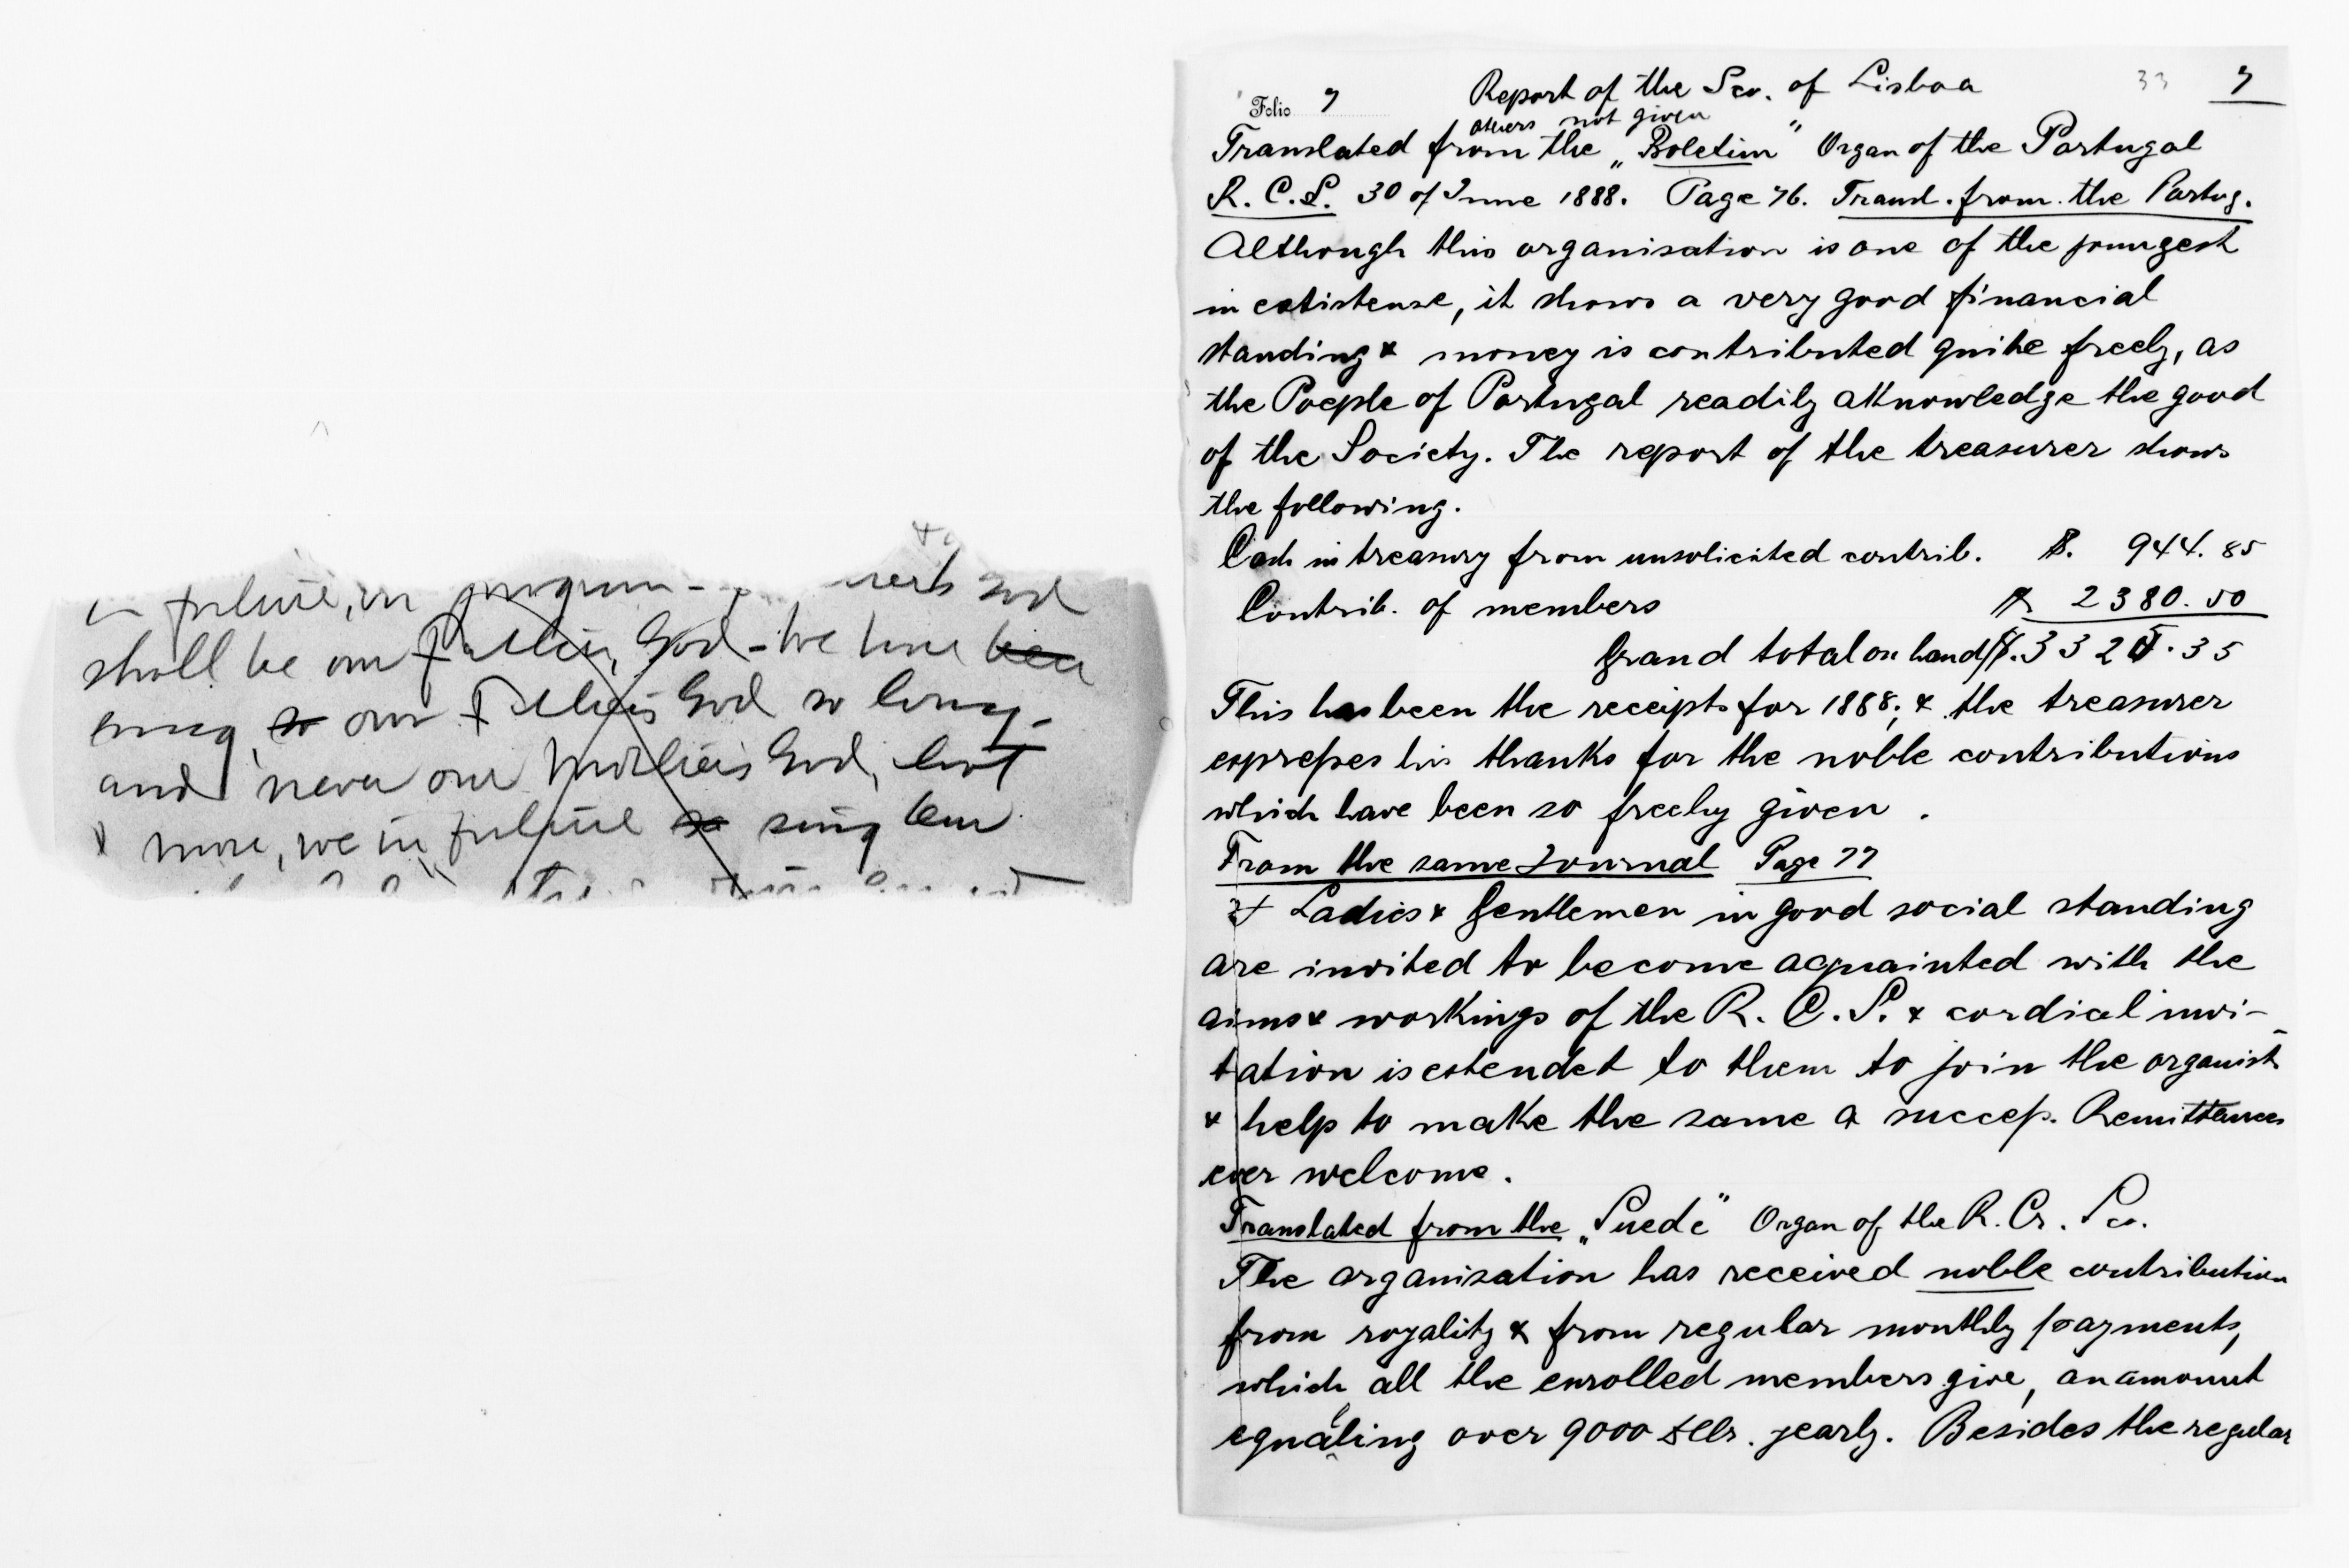 in future, in
shall be our Father, God - We have been
sung, so our Father's God so long -
and never our Mother's God, but
& more, we in future so sing
Report of the Sec. of Lisboa
33 7
Folio 7
others not given
Translated from the „Boletim" Organ of the Portugal
R. C. S. 30 of June 1888. Page 76. Transl. from the Portug.
Although this organisation is one of the youngest
in existense, it shows a very good financial
standing & money is contributed quite freely, as
the Poeple of Portugal readily aknowledge the good
of the Society. The report of the treasurer shows
the following.
Cash in treasury from unsolicited contrib. $. 944. 85
Contrib. of members $ 2380. 50
Grand total on hand $. 3325. 35
This has been the receipts for 1888; & the treasurer
expresses his thanks for the noble contributions
which have been so freely given.
From the same Journal Page 77
Ladies & Gentlemen in good social standing
are invited to become acquainted with the
aims & workings of the R. C. S. & cordical invi-
tation is extendet to them to join the organist.
& help to make the same a success. Remittances
ever welcome.
Translated from the „Suede" Organ of the R. Cr. So.
The organization has received noble contribution
from royality & from regular monthly payments,
which all the enrolled members give, an amount
equaling over 9000 dllr. yearly. Besides the regular